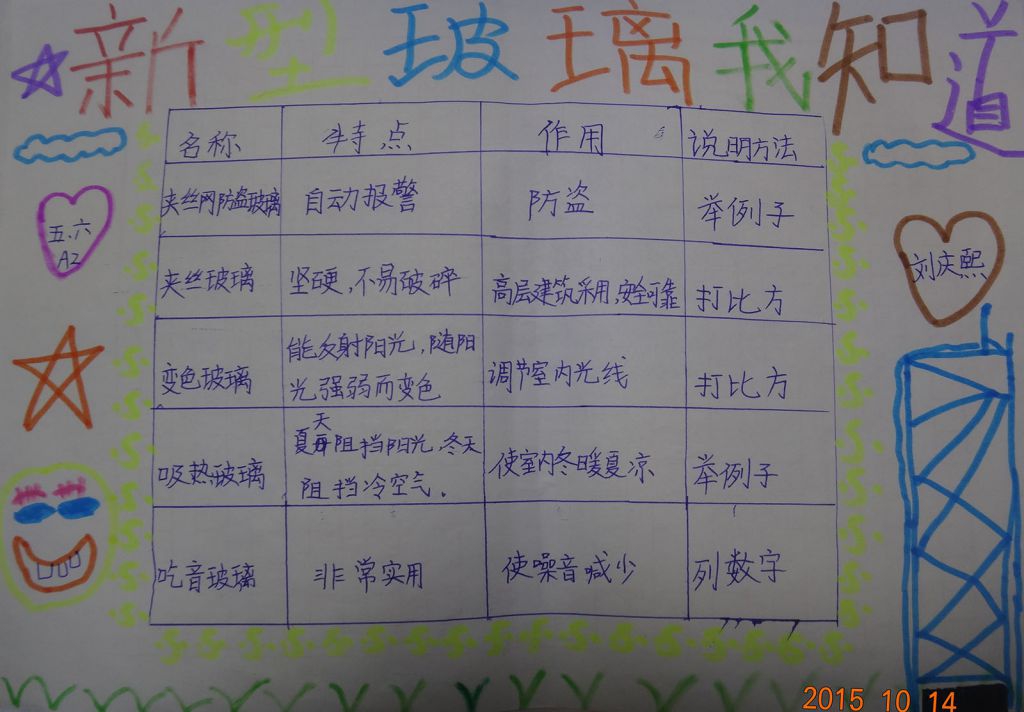 新型玻璃我知道
名称 特点 作用 说明方法
夹丝网防盗玻璃 自动报警 防盗 举例子
夹丝玻璃 坚硬,不易破碎 高层建筑采用,安全可靠 打比方
变色玻璃 能反射阳光,随阳光强弱而变色 调节室内光线 打比方
吸热玻璃 夏天阻挡阳光,冬天阻挡冷空气. 使室内冬暖夏凉 举例子
吃音玻璃 非常实用 使噪音减少 列数字
五.六
A2
刘庆熙
2015 10 14